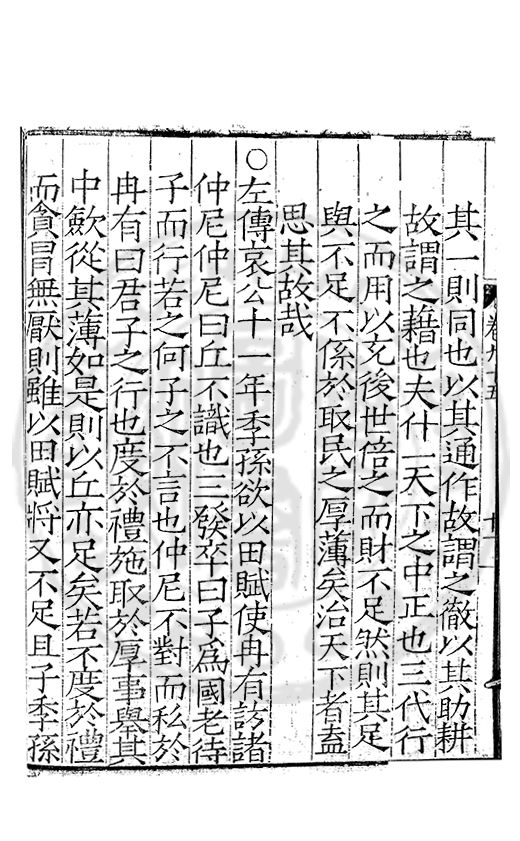 卷九十五
十一
其一則同也以其通作故謂之徹以其助耕
故謂之藉也夫什一天下之中正也三代行
之而用以充後世倍之而財不足然則其足
與不足不係於取民之厚薄矣治天下者盍
思其故哉
○左傳哀公十一年季孫欲以田賦使冉有訪諸
仲尼仲尼曰丘不識也三發卒曰子爲國老待
子而行若之何子之不言也仲尼不對而私於
冉有曰君子之行也度於禮施取於厚事舉其
中斂從其薄如是則以丘亦足矣若不度於禮
而貪冒無厭則雖以田賦將又不足且子季孫